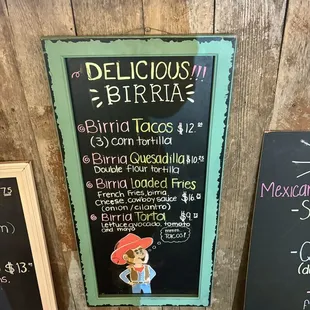 DELICIOUS!!!
BIRRIA
Birria Tacos $12.
(3) corn tortilla
Birria Quesadilla $10.
Double flour tortilla
Birria Loaded Fries
French Fries, birria
Cheese, cowboy sauce $16.
(onion/cilantro)
Birria Torta $9.
lettuce avocado, tomato
and mayo
Tacos!
$13.
Mexican